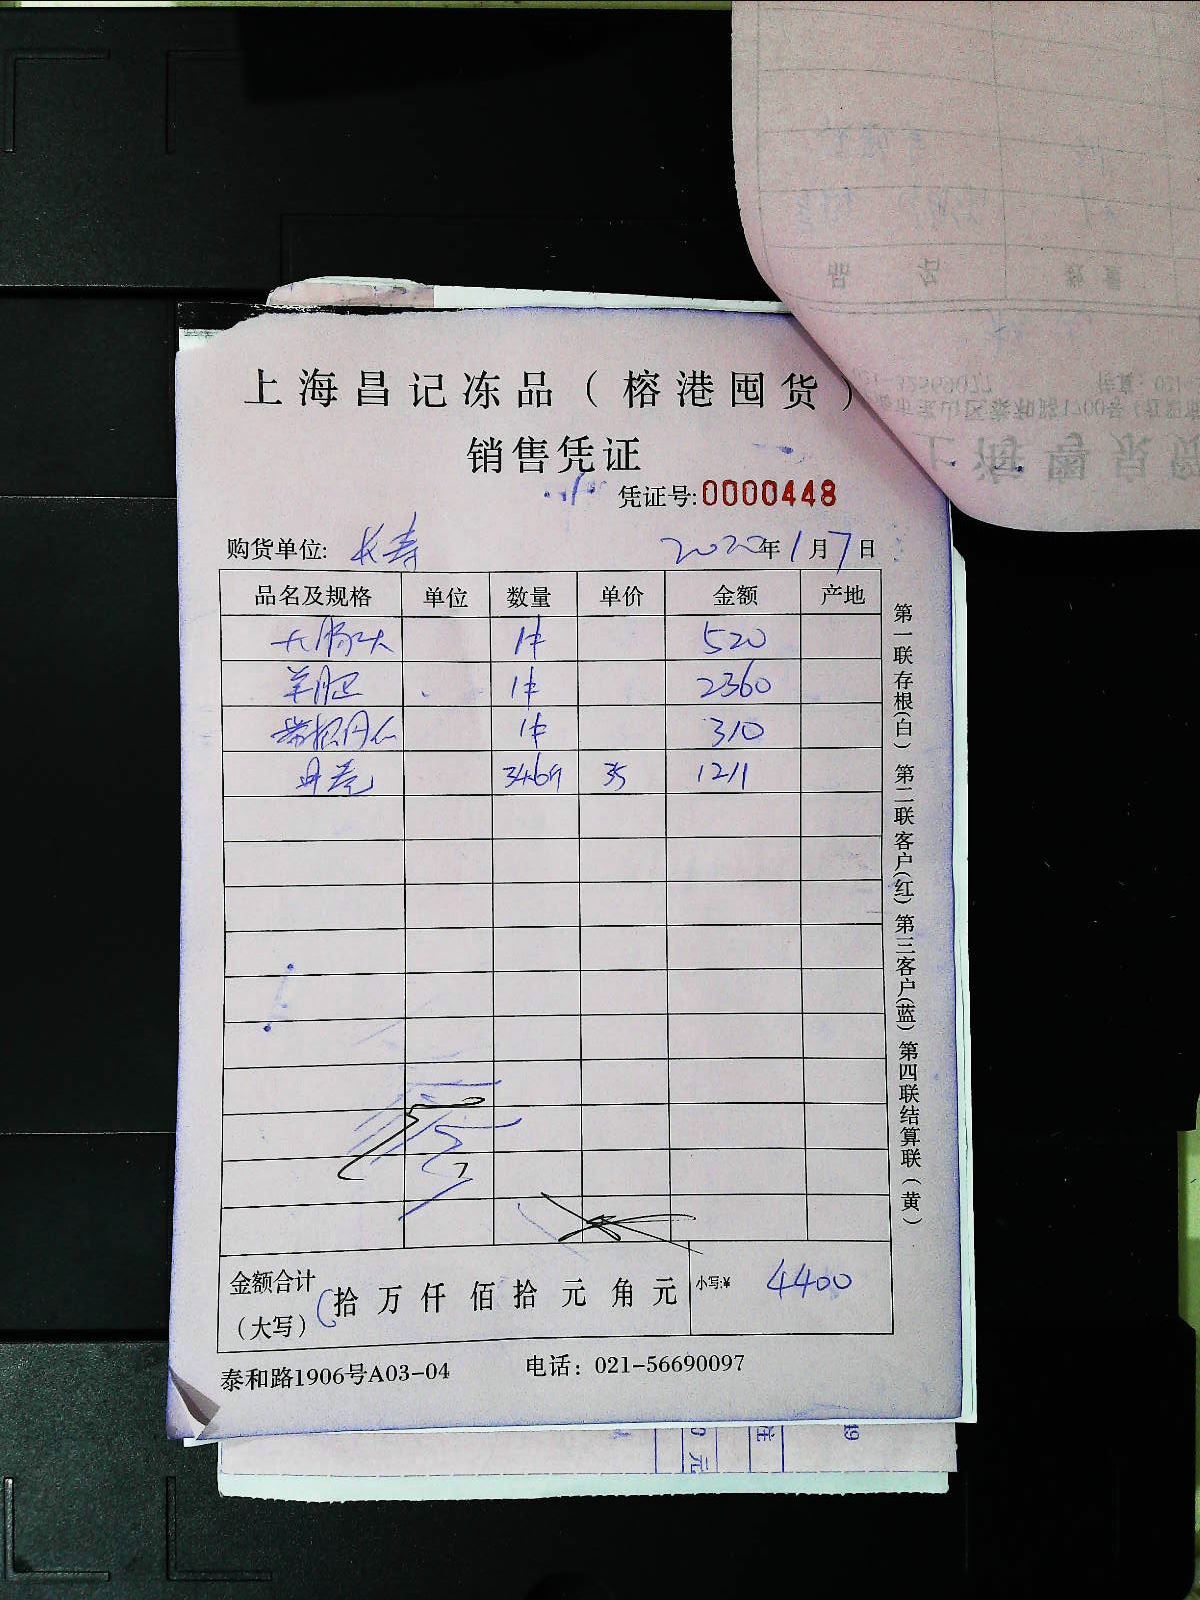 上海昌记冻品（榕港囤货）
销售凭证
凭证号:0000448
购货单位: 长寿 2020年1月7日
品名及规格 单位 数量 单价 金额 产地
大肠头 1件 520
羊肥 1件 2360
1件 310
34.6斤 35 1211
金额合计（大写） 拾 万 仟 佰 拾 元 角 元 小写:¥ 4400
泰和路1906号A03-04 电话：021-56690097
第一联存根(白) 第二联客户(红) 第三客户(蓝) 第四联结算联（黄）